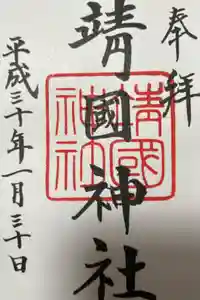 奉拝
靖國神社
靖國神社
平成三十年一月三十日